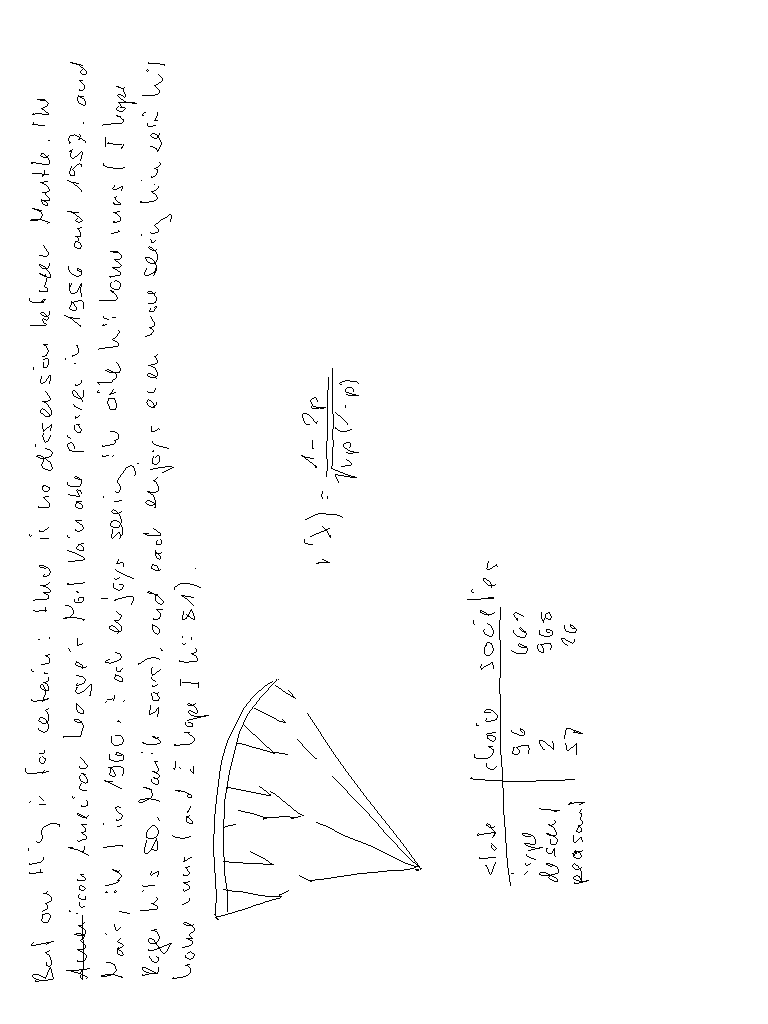 But one thing is for certain: there is no dissension between Mantle, the
American American League's Most Valuable Player in 1956 and 1957, and
Maris, the in 1960. Each enjoys seeing the other hit home runs (I hope
Roger hits 80, Mantle says), and each enjoys even more seeing himself hit
home runs (and I hope I hit 81).
r(X) = \frac{1-2p}{\sqrt{np(1-p)}}
slate chair societies
96 667
desert 2 968
peasant 57 26